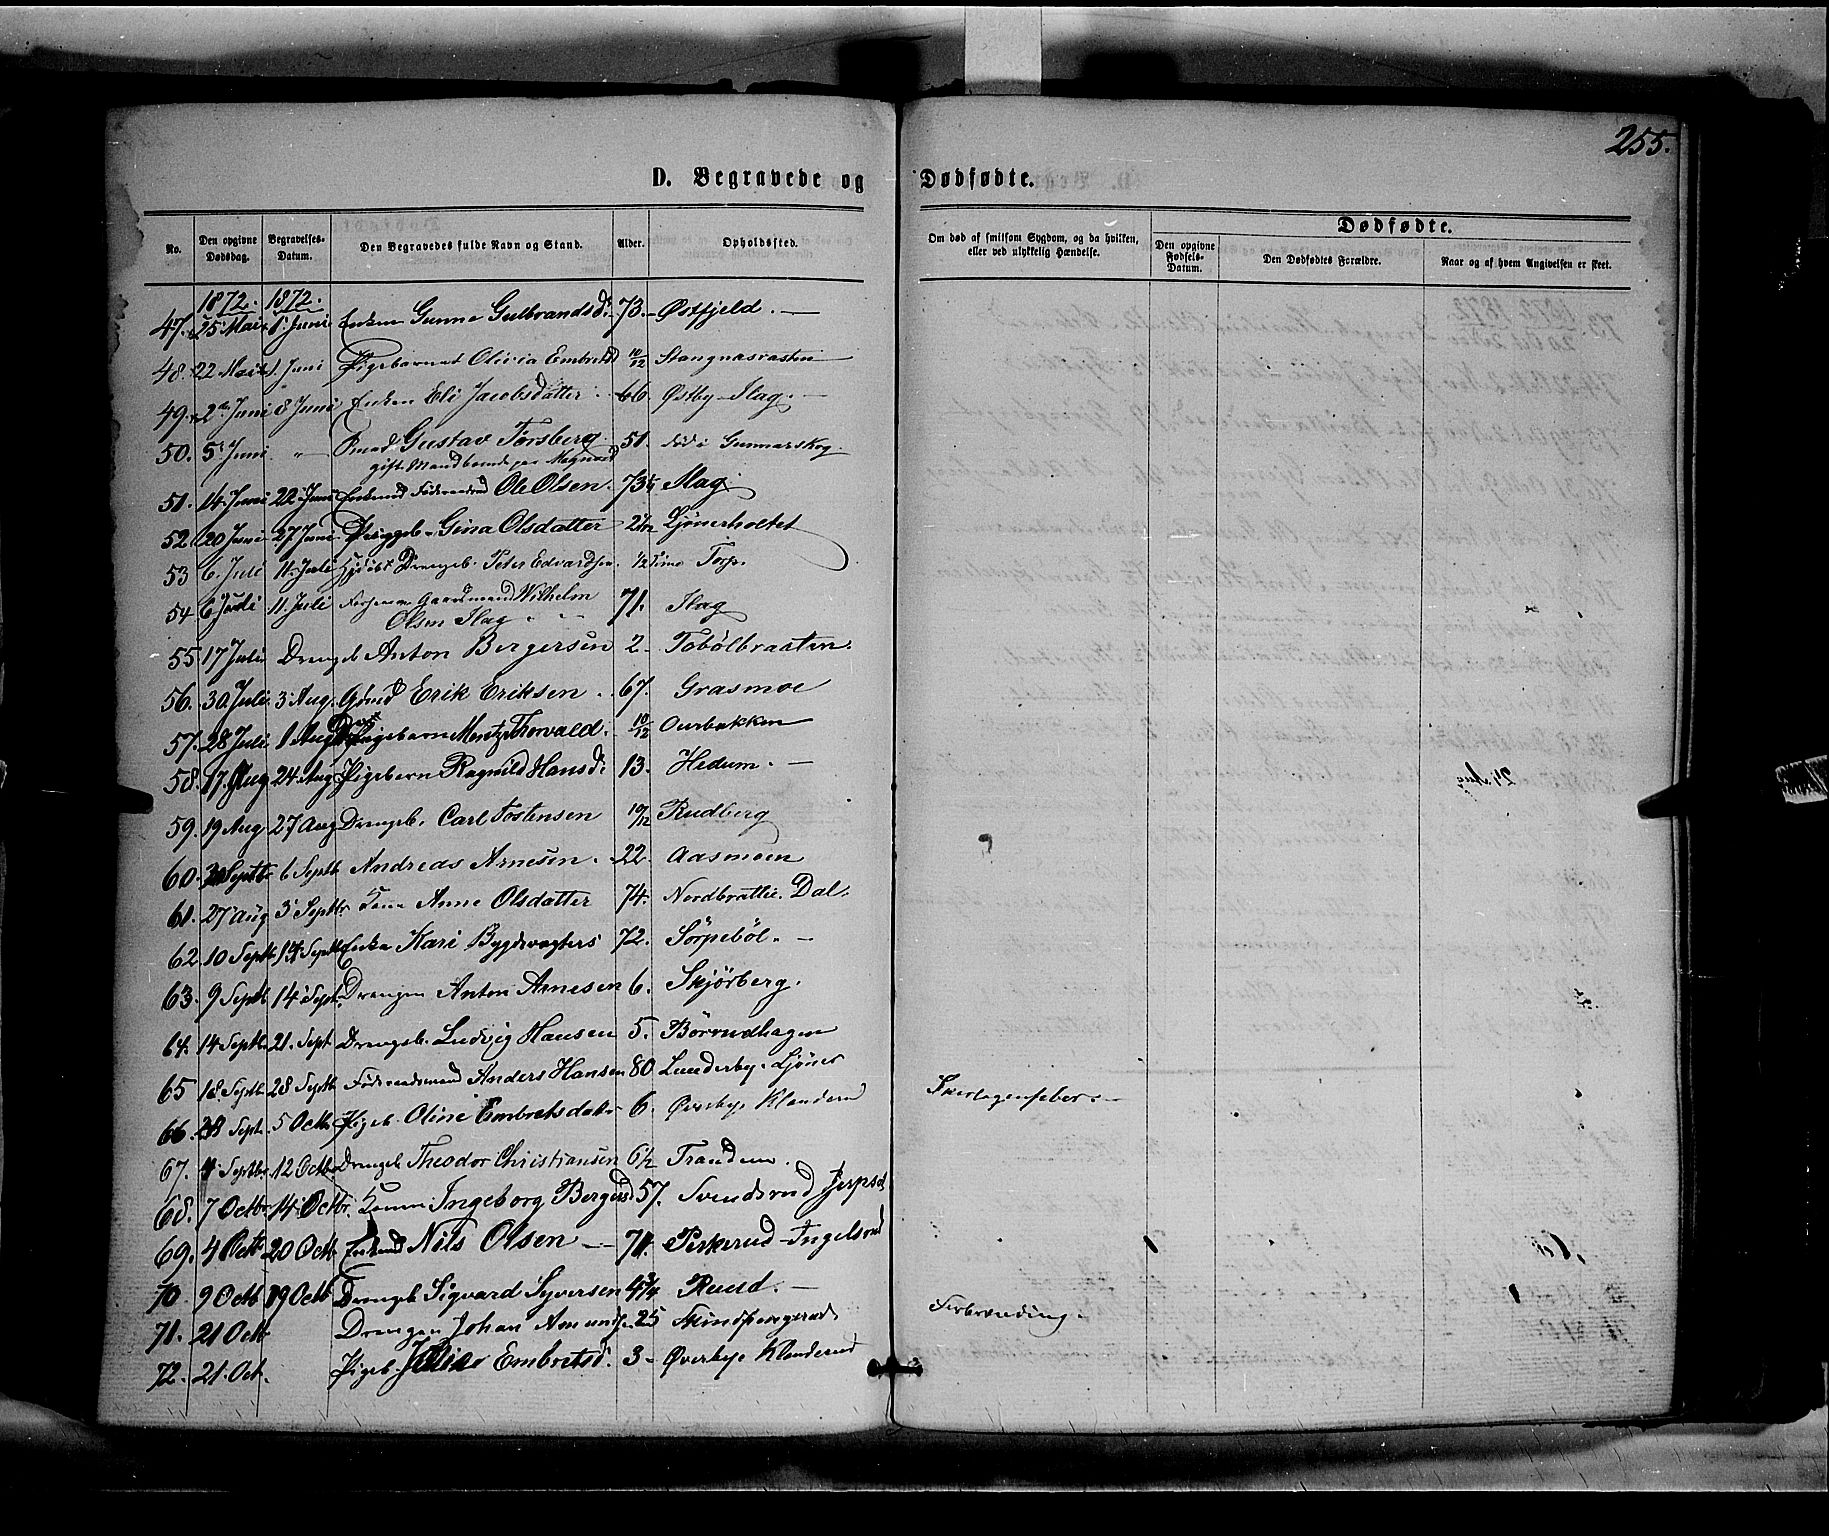 255.
D. Begravede og Dødfødte.
No. Den opgivne Dødsdag. Begravelses-Datum. Den Begravedes fulde Navn og Stand. Alder. Opholdssted. Om død af smitsom Sygdom, og da hvilken, eller ved ulykkelig Hændelse. Dødfødte. Den opgivne Fødsels-Datum. Den Dødfødtes Forældre. Naar og af hvem Angivelsen er skeet.
1872. 1872.
47. 25 Mai 1 Juni Enken Gunne Gulbrandsd. 73. Østfjeld.
48. 22 Mai 1 Juni Pigebarnet Olivia Embretsd 10/12 Stangnæsrasten
49. 2 Juni 8 Juni Enken Eli Jacobsdatter 66. Østby Flag.
50. 5 Juni " Gustav Torsberg. 51. død i Gunnarskog
gift Mand
51. 14 Juni 22 Juni Enkemd Føderaadsmd Ole Olsen. 73 1/4 Flag
52. 20 Juni 27 Juni Pigeb. Gina Olsdatter Ljønerholtet
53 6 Juli 11. Juli Drengeb. Peter Edvardsen. 1/2 Time Torp.
54 6 Juli 11. Juli Gaardmand Wilhelm 71. Flag
Olsen Flag
55. 17 Juli Drengeb Anton Bergersen 2. Tobølbraaten.
56. 30 Juli. 3 Aug. Gbmd Erik Eriksen. 67. Grasmoe
57. 28 Juli 1 Aug Møntz Thorvald. 10/12 Ourbakken
58. 17. Aug 24 Aug Pigebarn Ragnild Hansd. 13. Hedum. 24 Aug
59. 19 Aug 27 Aug Drengeb. Carl Tostensen 10/12 Rudberg
60. Septbr 6 Septb Andreas Arnesen. 22. Aasmoen
61. 27 Aug 3 Septbr. Kone Anne Olsdatter 74. Nordbrattlie. Dal.
62. 10 Septb 14 Septb Enke Kari Bygdevagters 72. Sørpebøl.
63. 9 Septb 14 Sept. Drengen Anton Arnesen 6. Skjørberg.
64. 14 Septb. 21. Sept Drengeb. Ludvig Hansen 5. Børrudhagen
65 18 Septb. 28 Septb Føderaadsmand Anders Hansen 80 Lunderbye. Ljøner
66. 28 Sept. 5 Octb. Pigeb. Oline Embretsdatr 6. Øverbye Klanderud Skarlagensfeber.
67. 4 Septbr. 12 Octb. Drengeb Theodor Christiansen 6 1/2 Trandem.
68. 7 Octbr. 14. Octbr. Konen Ingeborg Bergersd 57. Svendsrud Jerpset
69. 4 Octb 20 Octb Enkemd Nils Olsen 71. Perkerud Ingelsrud
70. 9 Octb 19 Octb Drengeb Sigvard Syversen 4 3/4 Ruud.
71. 21 Octb Drengen Johan Amundsen 25 Skindpungrud. Forbrænding.
72. 21. Oct. Pigeb. Julie Embretsd. 3 Øverbye Klanderud